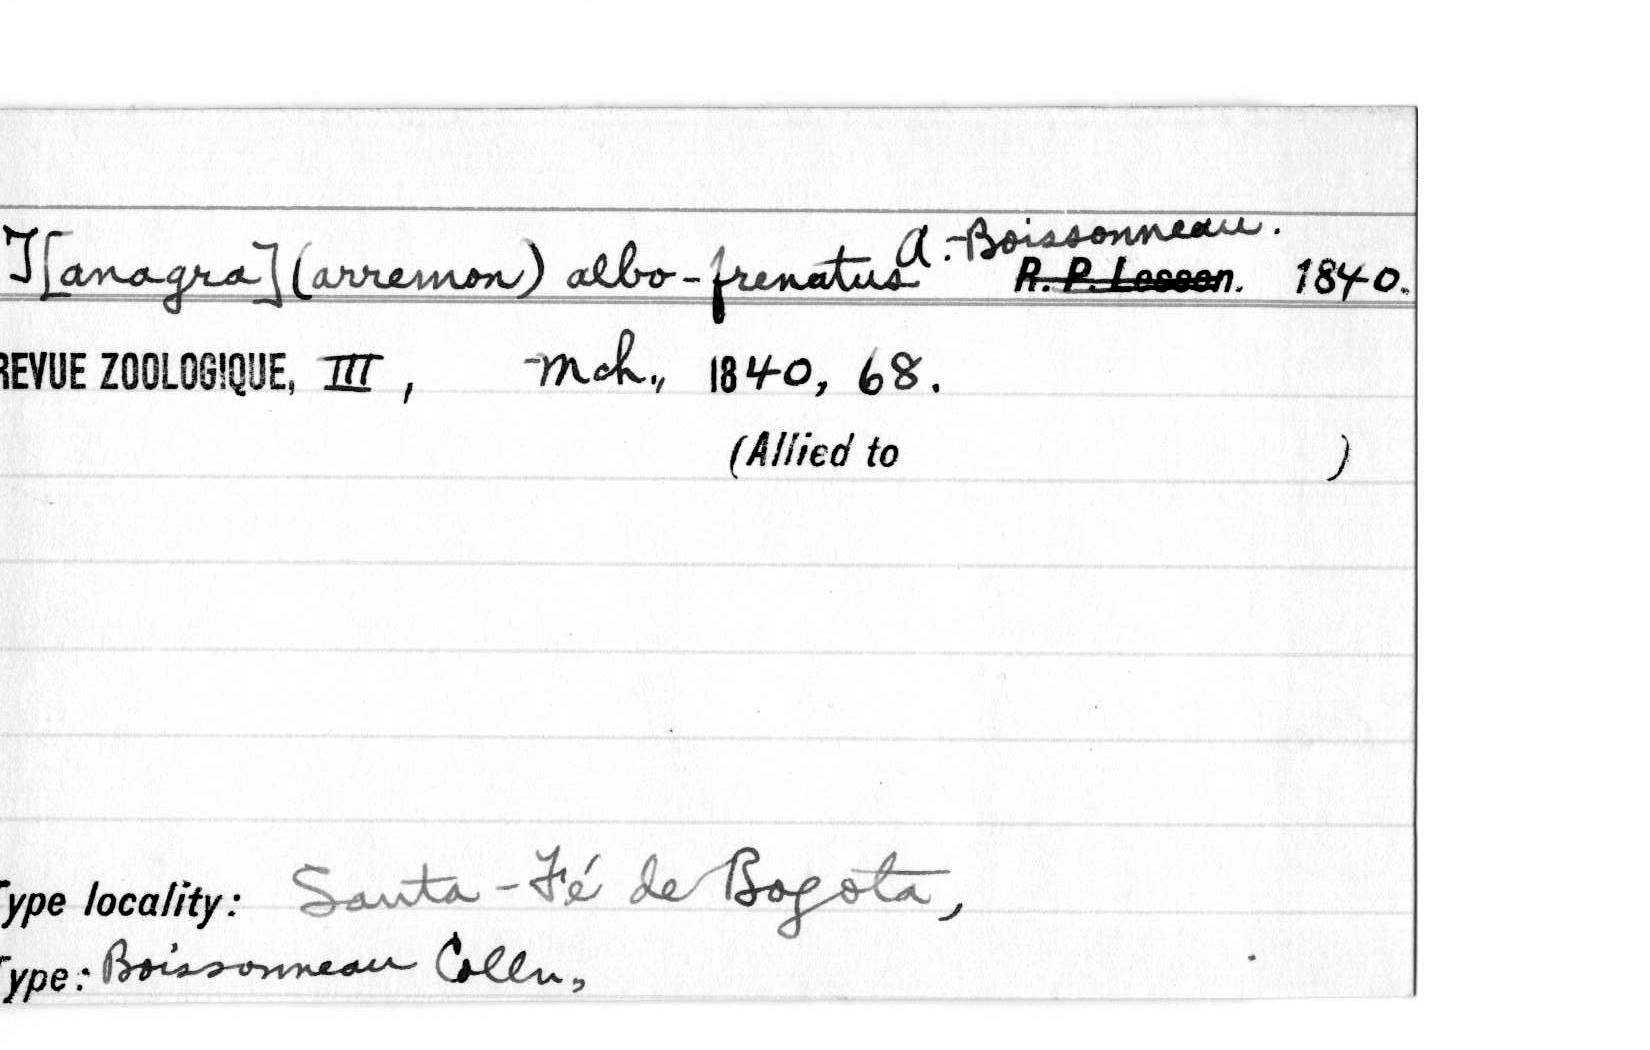 A. Boissonneau.
T[anagra] (arremon) albo-frenatus R. P. Lesson. 1840.
REVUE ZOOLOGIQUE, III, Mch., 1840, 68.
(Allied to )
Type locality: Santa-Fé de Bogota,
Type: Boissonneau Colln,